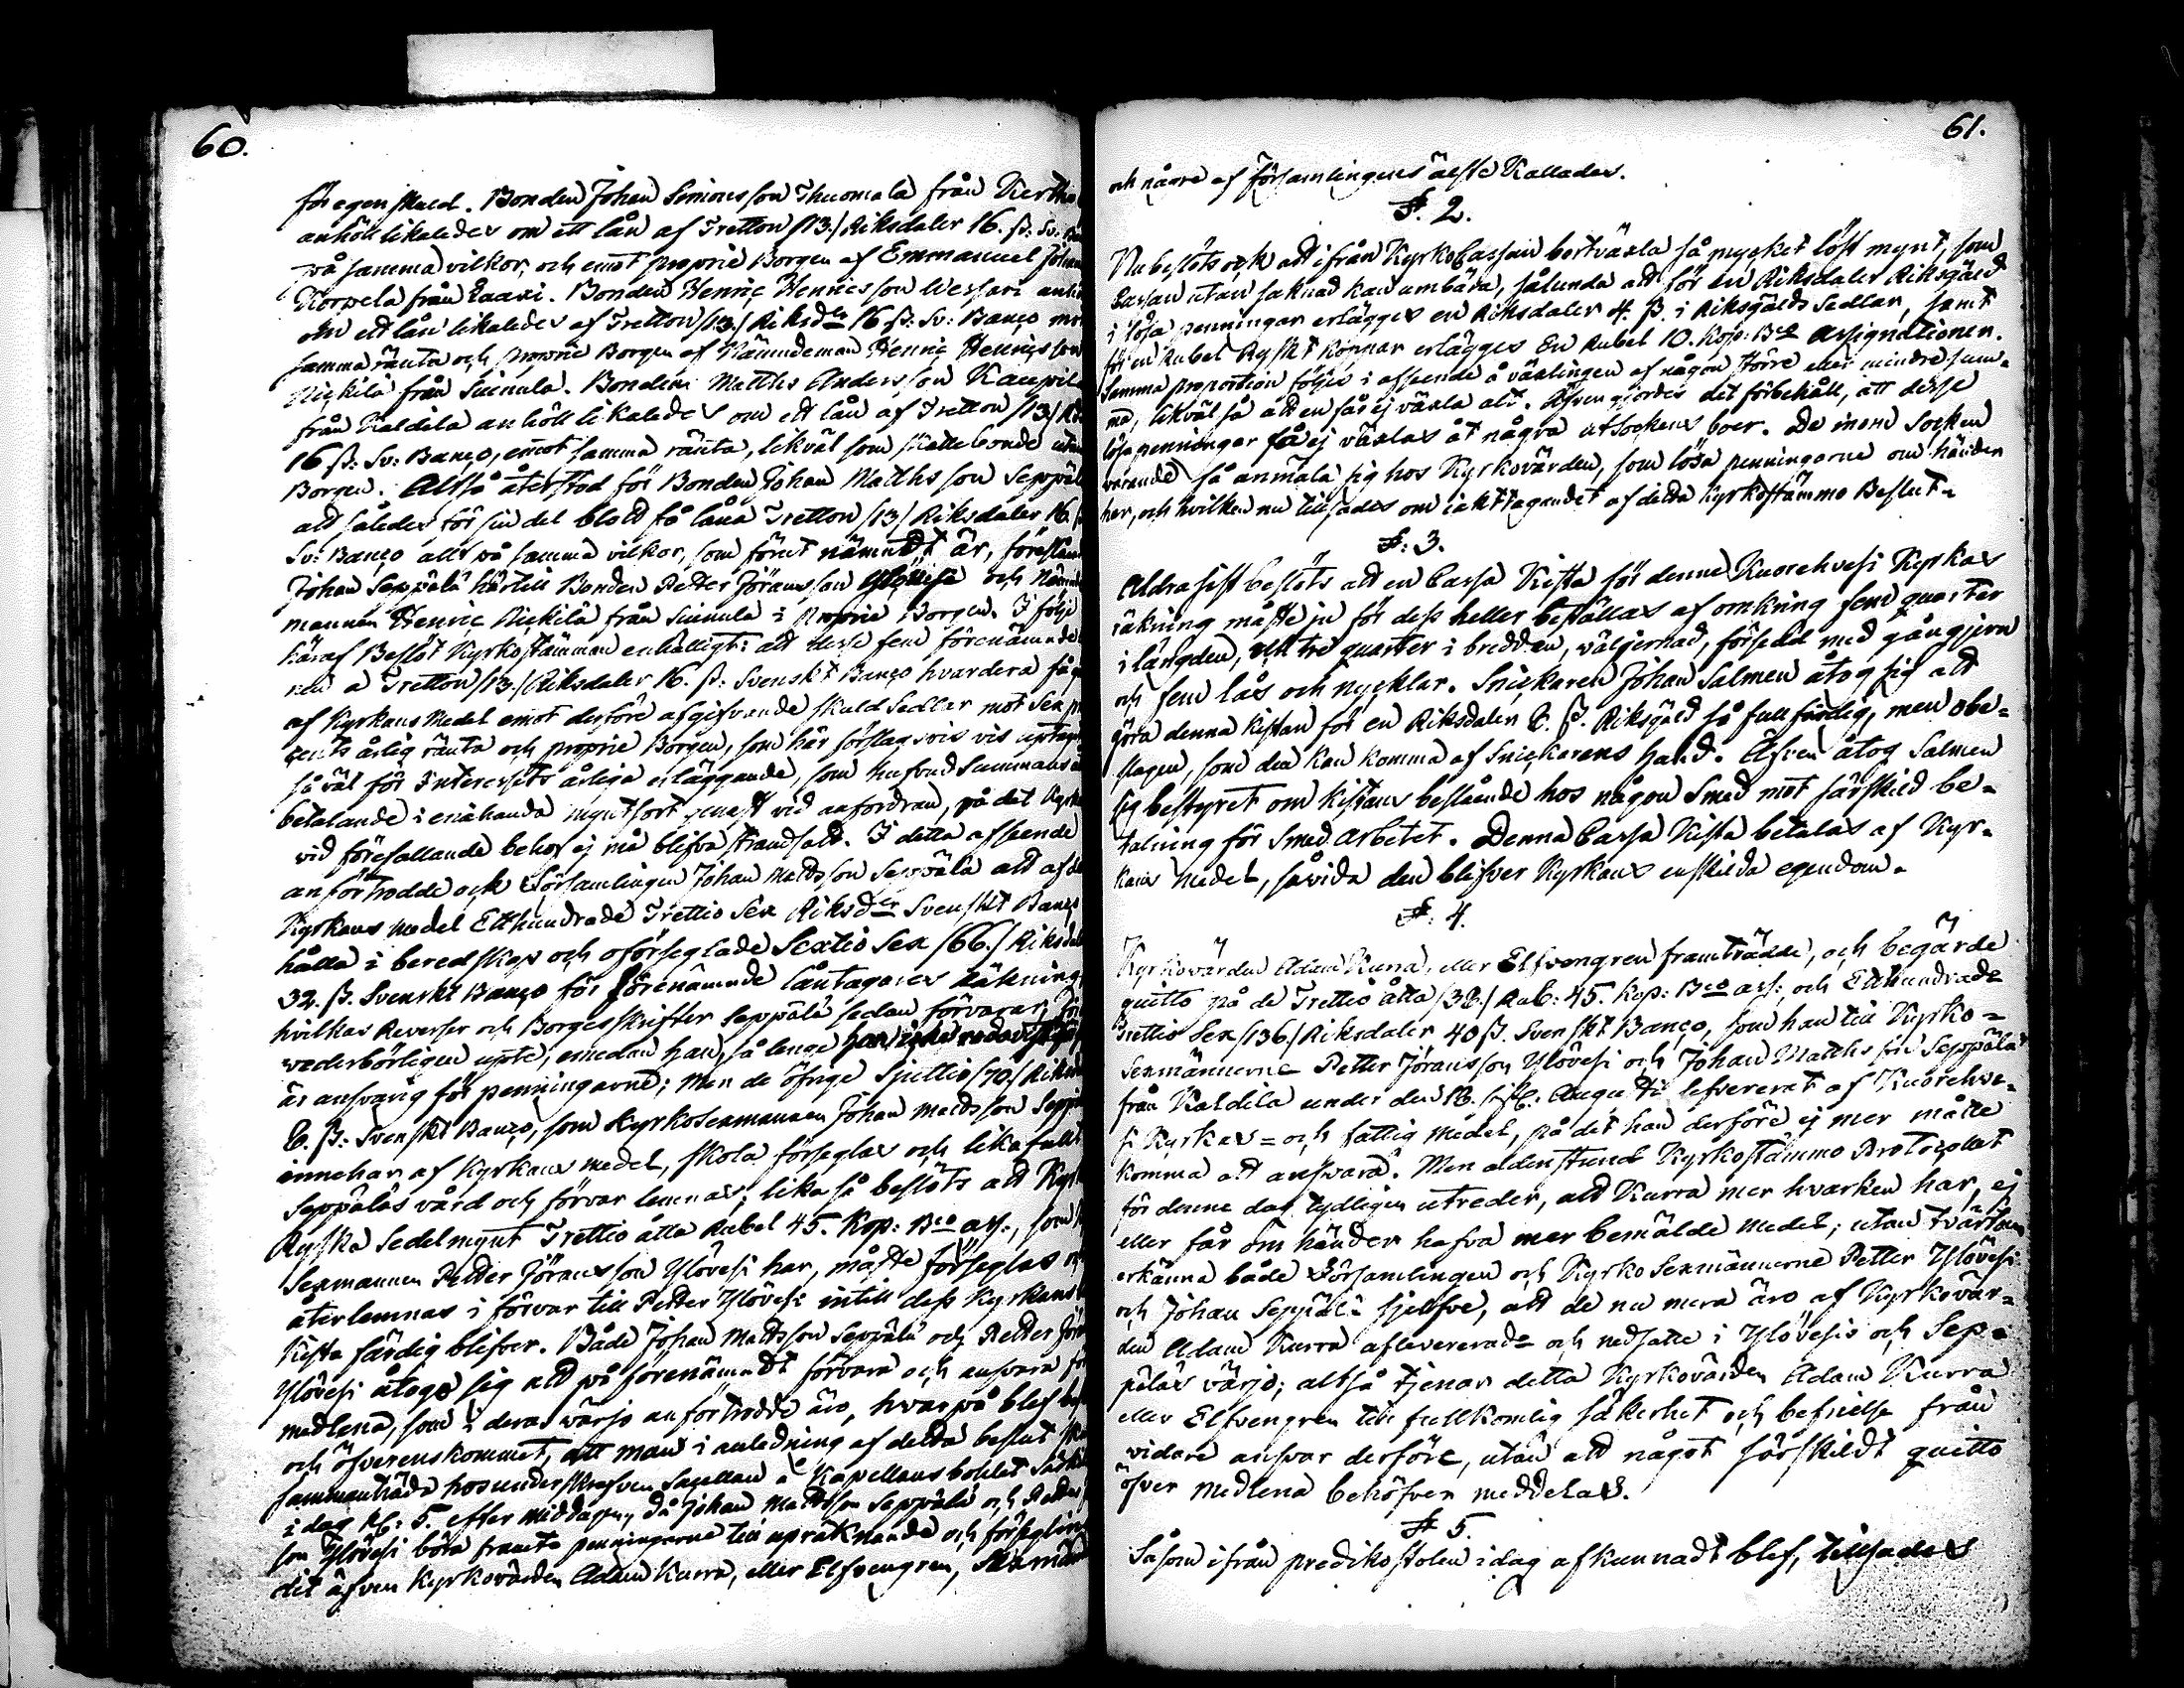 60.
för egen skuld. Bonden Johan Simonsson Thuomala från
anhöll likaledes om ett lån af Tretton /13./ Riksdaler 16. ß: Sv:
på samma vilkor, och emot proprie Borgen af Emmanuel
Korpela från Laaxi. Bonden Henric Henricsson Wessari
om ett lån likaledes af Tretton /13./ Riksd:r 16 ß: Sv: Banco
samma ränta och proprie Borgen af Nämndeman Henric Henricsson
Nickilä från Suinula. Bonden Matths Andersson Kaupila
från Kaldila anhöll likaledes om ett lån af Tretton /13/
16 ß: Sv: Banco, emot samma ränta, likväl som skattebonde utan
Borgen. Altså återstod för Bonden Johan Matthsson Seppälä
att således för sin del blott få låna Tretton /13/ Riksdaler 16. ß
Sv: Banco allt på samma vilkor, som förut nämndt är,
Johan Seppälä härtill Bonden Petter Jöransson Ylövesi och
mannen Henric Nickilä från Suinula i proprie Borgen. I följe
häraf Beslöt Kyrkostämman enhälligt: att desse fem förenämnde
a Tretton /13./ Riksdaler 16. ß: Svenskt Banco hvardera få
af Kyrkans Medel emot derföre afgifvande skuld Sedlar mot Sex
cents årlig ränta och proprie Borgen, som här förslagsvis vis
så väl för Interessets årliga erläggande, som hufvud Summans
betalande i enahanda myntsort genast vid anfordran, på det
vid förefallande behof ej må blifva strandsatt. I detta afseende
anförtrodde ock Församlingen Johan Mattsson Seppälä att af
Kyrkans medel Etthundrade Trettio Sex Riksd:r Svenskt Banco
hålla i beredskap och oförseglade Sextio Sex /66./
32. ß. Svenskt Banco för förenämnde låntagares räkning
hvilkas Reverser och Borgesskrifter Seppälä sedan förvarar,
vederbörligen upte, emedan han, så länge
är ansvarig för penningarne; men de öfrige Sjuttio /70./
8. ß: Svenskt Banco, som Kyrkosexmannen Johan Mattsson
innehar af Kyrkans medel, skola förseglas och likafullt
Seppäläs vård och förvar lemnas; lika så beslöts att
Ryska Sedelmynt Trettio åtta Rubel 45. Kop: Bco ass:, som
Sexmannen Petter Jöransson Ylövesi har, måste förseglas
återlemnas i förvar till Petter Ylövesi intill dess Kyrkans
Kista färdig blifver. Både Johan Mattsson Seppälä och Petter
Ylövesi åtogo sig att på förenämndt förvara och ansvara för
medlena, som i deras värjo anförtrodde äro, hvarpå blef
och öfverenskommet, att man i anledning af detta beslut
sammanträde hos underskrefven Sacellan å Kapellans bohlet
i dag Kl: 5. efter middagen, då Johan Mattsson Seppälä och Petter
son Ylövesi böra framte penningarne till uppräknande och försegling
dit äfven Kyrkovärden Adam Kurra, eller Elfvengren,
61.
och någre af församlingens älste Kallades.
§. 2.
Nu beslöts ock att ifrån Kyrko Cassan bortväxla så mycket löst mynt, som
Cassan utan saknad kan umbära, sålunda att för en Riksdaler Riksgäld
i lösa penningar erlägges en Riksdaler 4. ß. i Riksgälds Sedlar, samt
för en Rubel Ryskt Koppar erlägges En Rubel 10. Kop: Bco assignationer.
Samma proportion följes i afseende å växlingen af någon större eller mindre sum-
ma, likväl så att en får ej växla alt. Äfven gjordes det förbehåll, att desse
lösa penningar få ej växlas åt några utsockens boer. De inom Socken
varande få anmäla sig hos Kyrkovärden, som lösa penningarne om händer
har, och hvilken nu tillsades om iakttagandet af detta Kyrkostämmo Beslut.
§: 3.
Aldrasist beslöts att en Cassa Kista för denne Kuorehvesi Kyrkas
räkning måste ju för dess heller beställas af omkring fem quarter
i längden, och tre quarter i bredden, väl jernad, försedd med gångjern
och fem lås och nycklar. Snickaren Johan Salmen åtog sig att
göra denna Kistan för en Riksdaler 8. ß. Riksgäld så full färdig, men obe-
slagen, som den kan komma af Snickarens hand. Äfven åtog Salmen
sig bestyret om Kistans beslående hos någon Smed mot särskild be-
talning för Smed arbetet. Denna Cassa Kista betalas af Kyr-
kans medel, såvida den blifver Kyrkans enskilda egendom.
§. 4.
Kyrkovärden Adam Kurra, eller Elfvengren framträdde, och begärde
quitto på de Trettio åtta /38./ Rub: 45. Kop: Bco ass:, och Etthundrade
Trettio Sex /136/ Riksdaler 40 ß. Svenskt Banco, som han till Kyrko-
Sexmännerne Petter Jöransson Ylövesi och Johan Matthsson Seppälä
från Kaldila under den Augusti lefvererat af Kuorehve-
si Kyrkas- och fattig medel, på det han derföre ej mer måtte
komma att ansvara. Men aldenstund Kyrkostämmo Protocollet
för denne dag tydligen utreder, att Kurra mer hvarken har, ej
eller får om händer hafva mer bemälde medel; utan tvärtom
erkänna både Församlingen och Kyrko Sexmännerne Petter Ylövesi
och Johan Seppälä sjelfve, att de nu mera äro af Kyrkovär-
den Adam Kurra aflevererade och nedsatte i Ylövesis och Sep-
päläs värjo; altså tjenar detta Kyrkovärden Adam Kurra
eller Elfvengren till fullkomlig säkerhet och befrielse från
vidare ansvar derföre, utan att något särskildt quitto
öfver medlena behöfver meddelas.
§ 5.
Såsom ifrån predikostolen i dag afkunnadt blef, tillsades